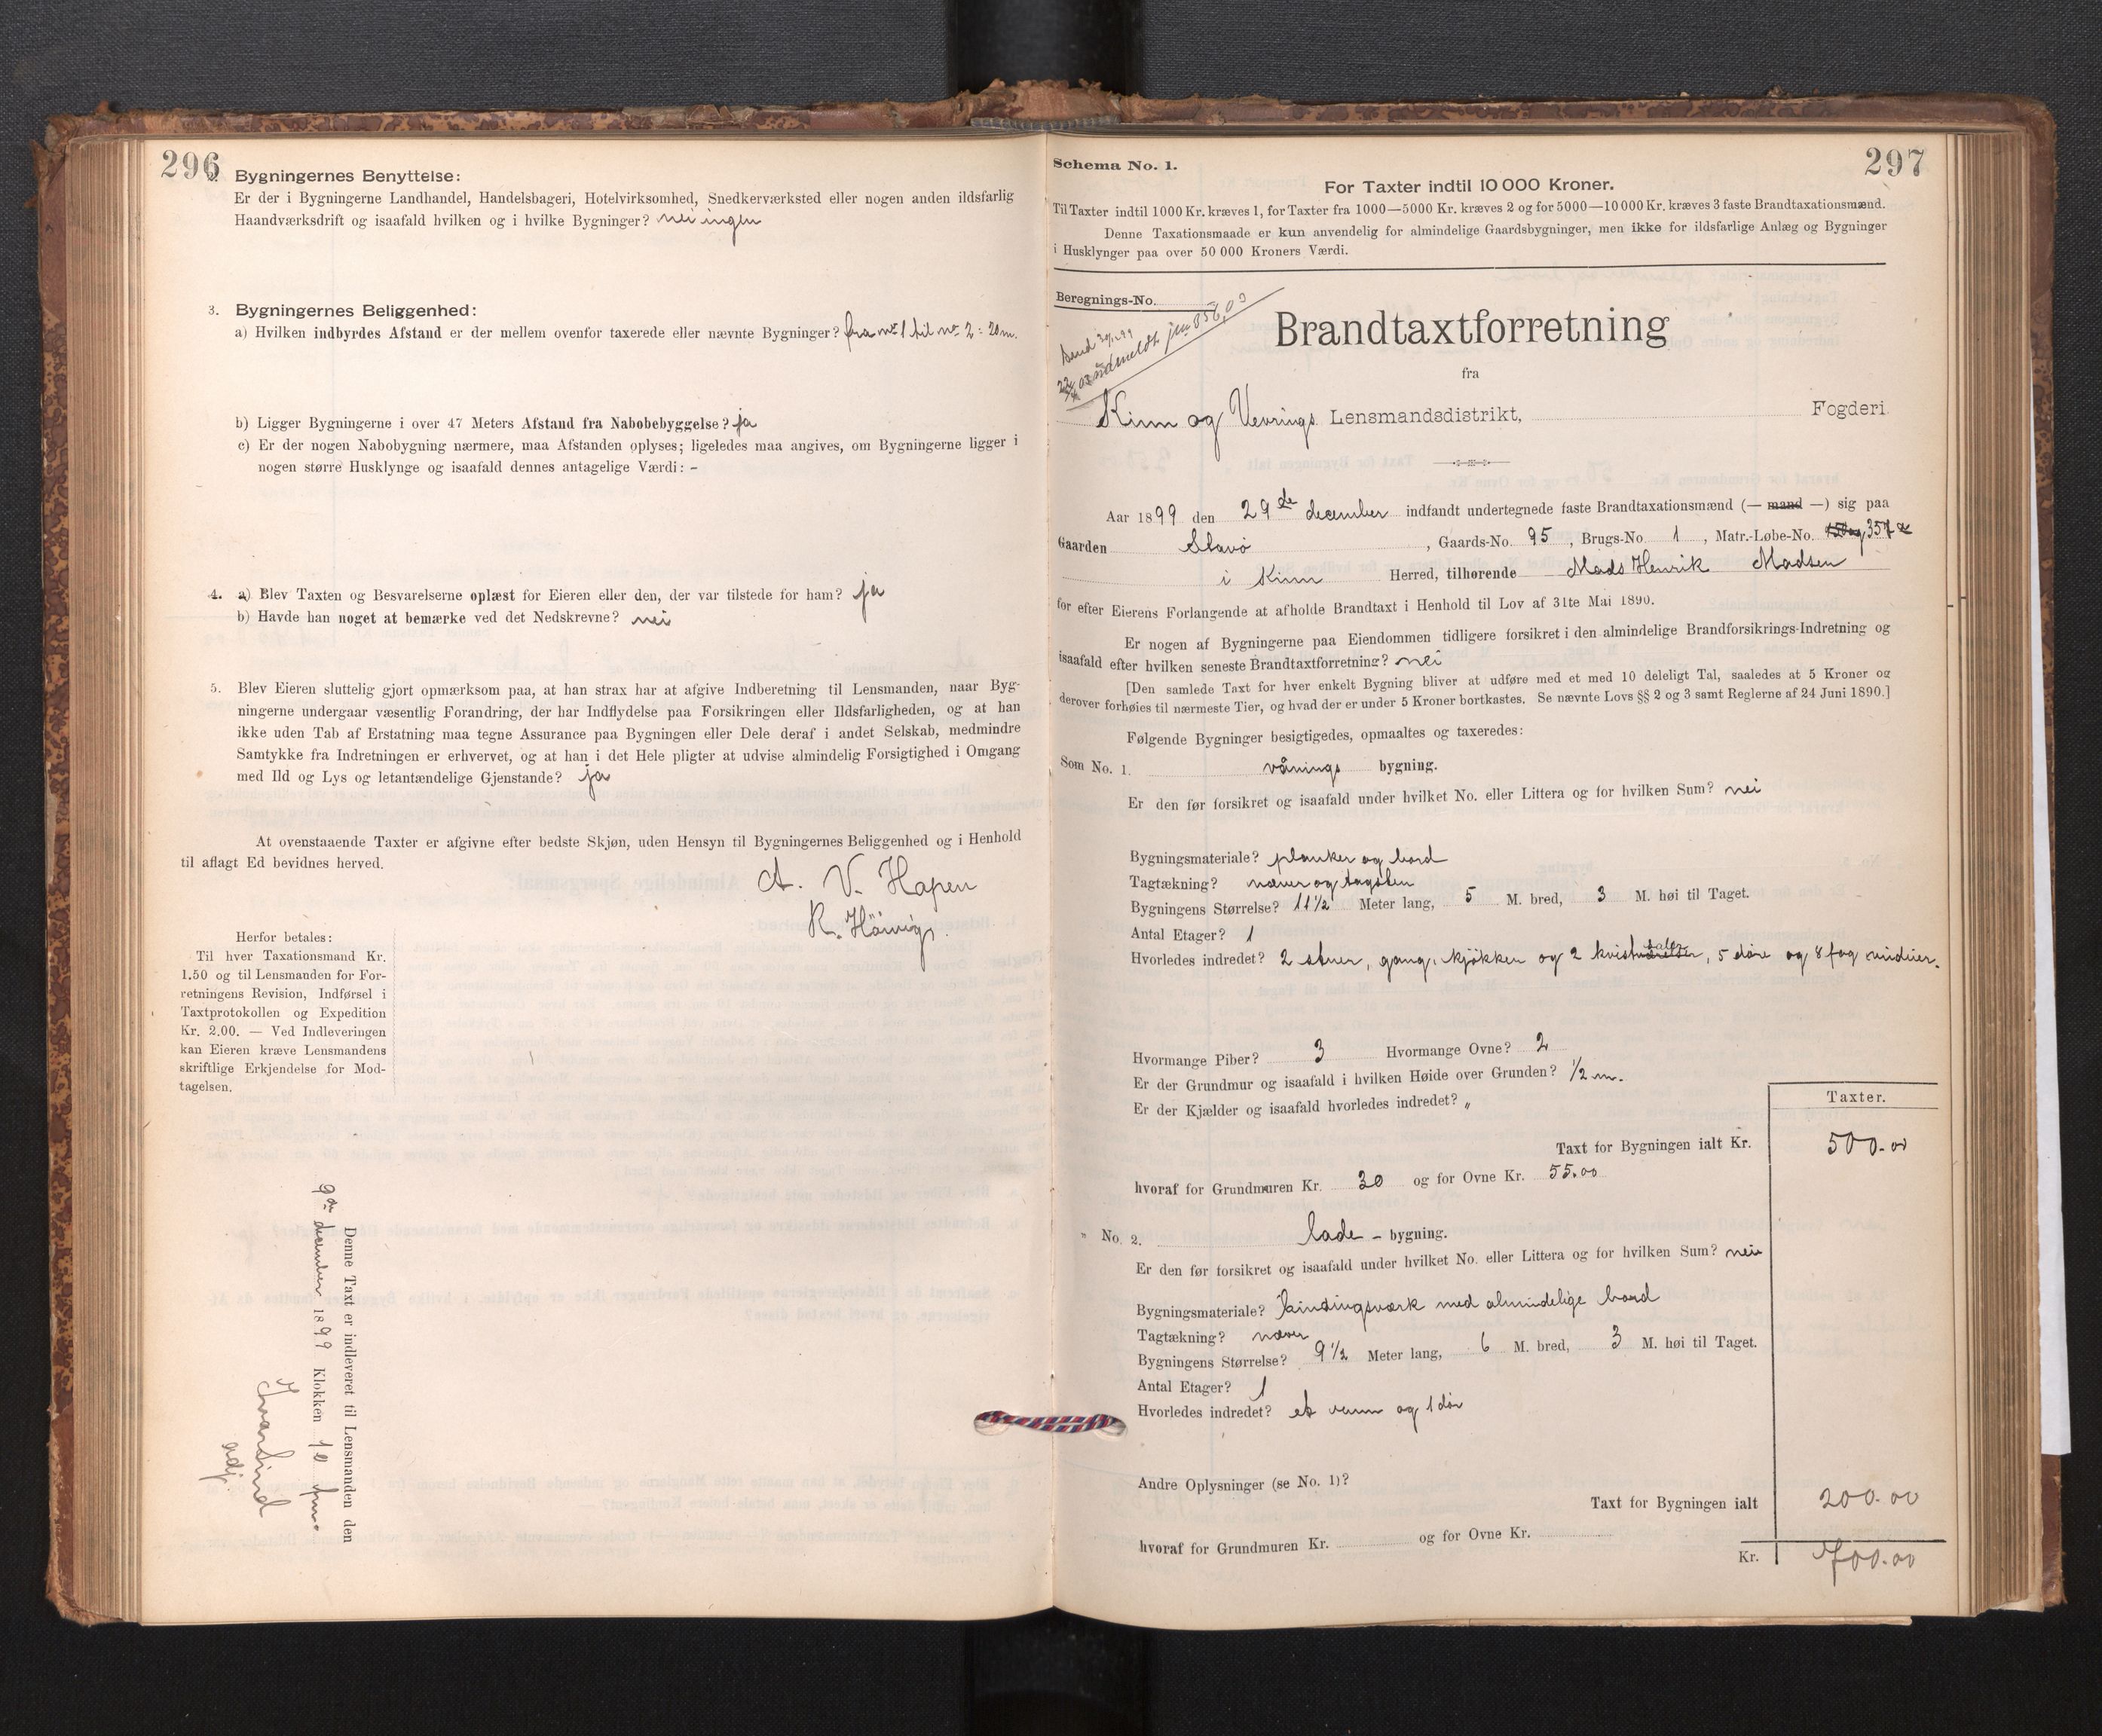 296
2. Bygningernes Benyttelse:
Er der i Bygningerne Landhandel, Handelsbageri, Hotelvirksomhed, Snedkerværksted eller nogen anden ildsfarlig
Haandværksdrift og isaafald hvilken og i hvilke Bygninger? nei ingen
3. Bygningernes Beliggenhed:
a) Hvilken indbyrdes Afstand er der mellem ovenfor taxerede eller nævnte Bygninger? fra no 1 til no 2 = 20 m.
b) Ligger Bygningerne i over 47 Meters Afstand fra Nabobebyggelse? ja
c) Er der nogen Nabobygning nærmere, maa Afstanden oplyses; ligeledes maa angives, om Bygningerne ligger i
nogen større Husklynge og isaafald dennes antagelige Værdi: -
4. a) Blev Taxten og Besvarelserne oplæst for Eieren eller den, der var tilstede for ham? ja
b) Havde han noget at bemærke ved det Nedskrevne? nei
5. Blev Eieren sluttelig gjort opmærksom paa, at han strax har at afgive Indberetning til Lensmanden, naar Byg-
ningerne undergaar væsentlig Forandring, der har Indflydelse paa Forsikringen eller Ildsfarligheden, og at han
ikke uden Tab af Erstatning maa tegne Assurance paa Bygningen eller Dele deraf i andet Selskab, medmindre
Samtykke fra Indretningen er erhvervet, og at han i det Hele pligter at udvise almindelig Forsigtighed i Omgang
med Ild og Lys og letantændelige Gjenstande? ja
At ovenstaaende Taxter er afgivne efter bedste Skjøn, uden Hensyn til Bygningernes Beliggenhed og i Henhold
til aflagt Ed bevidnes herved.
A. V. Hapen
R. Høivig.
Herfor betales:
Til hver Taxationsmand Kr.
1.50 og til Lensmanden for For-
retningens Revision, Indførsel i
Taxtprotokollen og Expedition
Kr. 2.00. — Ved Indleveringen
kan Eieren kræve Lensmandens
skriftlige Erkjendelse for Mod-
tagelsen.
Denne Taxt er indleveret til Lensmanden den
9de december 1899 Klokken 10 fm.
adj.
297
Schema No. 1.
For Taxter indtil 10 000 Kroner.
Til Taxter indtil 1000 Kr. kræves 1, for Taxter fra 1000—5000 Kr. kræves 2 og for 5000—10 000 Kr. kræves 3 faste Brandtaxationsmænd.
Denne Taxationsmaade er kun anvendelig for almindelige Gaardsbygninger, men ikke for ildsfarlige Anlæg og Bygninger
i Husklynger paa over 50 000 Kroners Værdi.
Beregnings-No.
Brandtaxtforretning
fra
Kinn og Vevrings Lensmandsdistrikt, Fogderi
Aar 1899 den 29de december indfandt undertegnede faste Brandtaxationsmænd (— mand —) sig paa
Gaarden Stavø, Gaards-No. 95, Brugs-No. 1, Matr.-Løbe-No. 357 a
i Kinn Herred, tilhørende Mads Henrik Madsen
for efter Eierens Forlangende at afholde Brandtaxt i Henhold til Lov af 31te Mai 1890.
Er nogen af Bygningerne paa Eiendommen tidligere forsikret i den almindelige Brandforsikrings-Indretning og
isaafald efter hvilken seneste Brandtaxtforretning? nei
[Den samlede Taxt for hver enkelt Bygning bliver at udføre med et med 10 deleligt Tal, saaledes at 5 Kroner og
derover forhøies til nærmeste Tier, og hvad der er under 5 Kroner bortkastes. Se nævnte Lovs §§ 2 og 3 samt Reglerne af 24 Juni 1890.]
Følgende Bygninger besigtigedes, opmaaltes og taxeredes:
Som No. 1. vånings bygning.
Er den før forsikret og isaafald under hvilket No. eller Littera og for hvilken Sum? nei
Bygningsmateriale? planker og bord
Tagtækning? næver og tagsten
Bygningens Størrelse? 11 1/2 Meter lang, 5 M. bred, 3 M. høi til Taget.
Antal Etager? 1
Hvorledes indredet? 2 stuer, gang, kjøkken og 2 kvistværelser, 5 døre og 8 fag vinduer.
Hvormange Piber? 3 Hvormange Ovne? 2
Er der Grundmur og isaafald i hvilken Høide over Grunden? 1/2 m.
Er der Kjælder og isaafald hvorledes indredet? „
Taxter.
Taxt for Bygningen ialt Kr. 500.00
hvoraf for Grundmuren Kr. 30 og for Ovne Kr. 55.00
" No. 2. lade - bygning.
Er den før forsikret og isaafald under hvilket No. eller Littera og for hvilken Sum? nei
Bygningsmateriale? bindingsværk med almindelige bord
Tagtækning? næver
Bygningens Størrelse? 9 1/2 Meter lang, 6 M. bred, 3 M. høi til Taget.
Antal Etager? 1
Hvorledes indredet? et rum og 1 dør
Andre Oplysninger (se No. 1)?
Taxt for Bygningen ialt 200.00
hvoraf for Grundmuren Kr. og for Ovne Kr.
Kr. 700.00